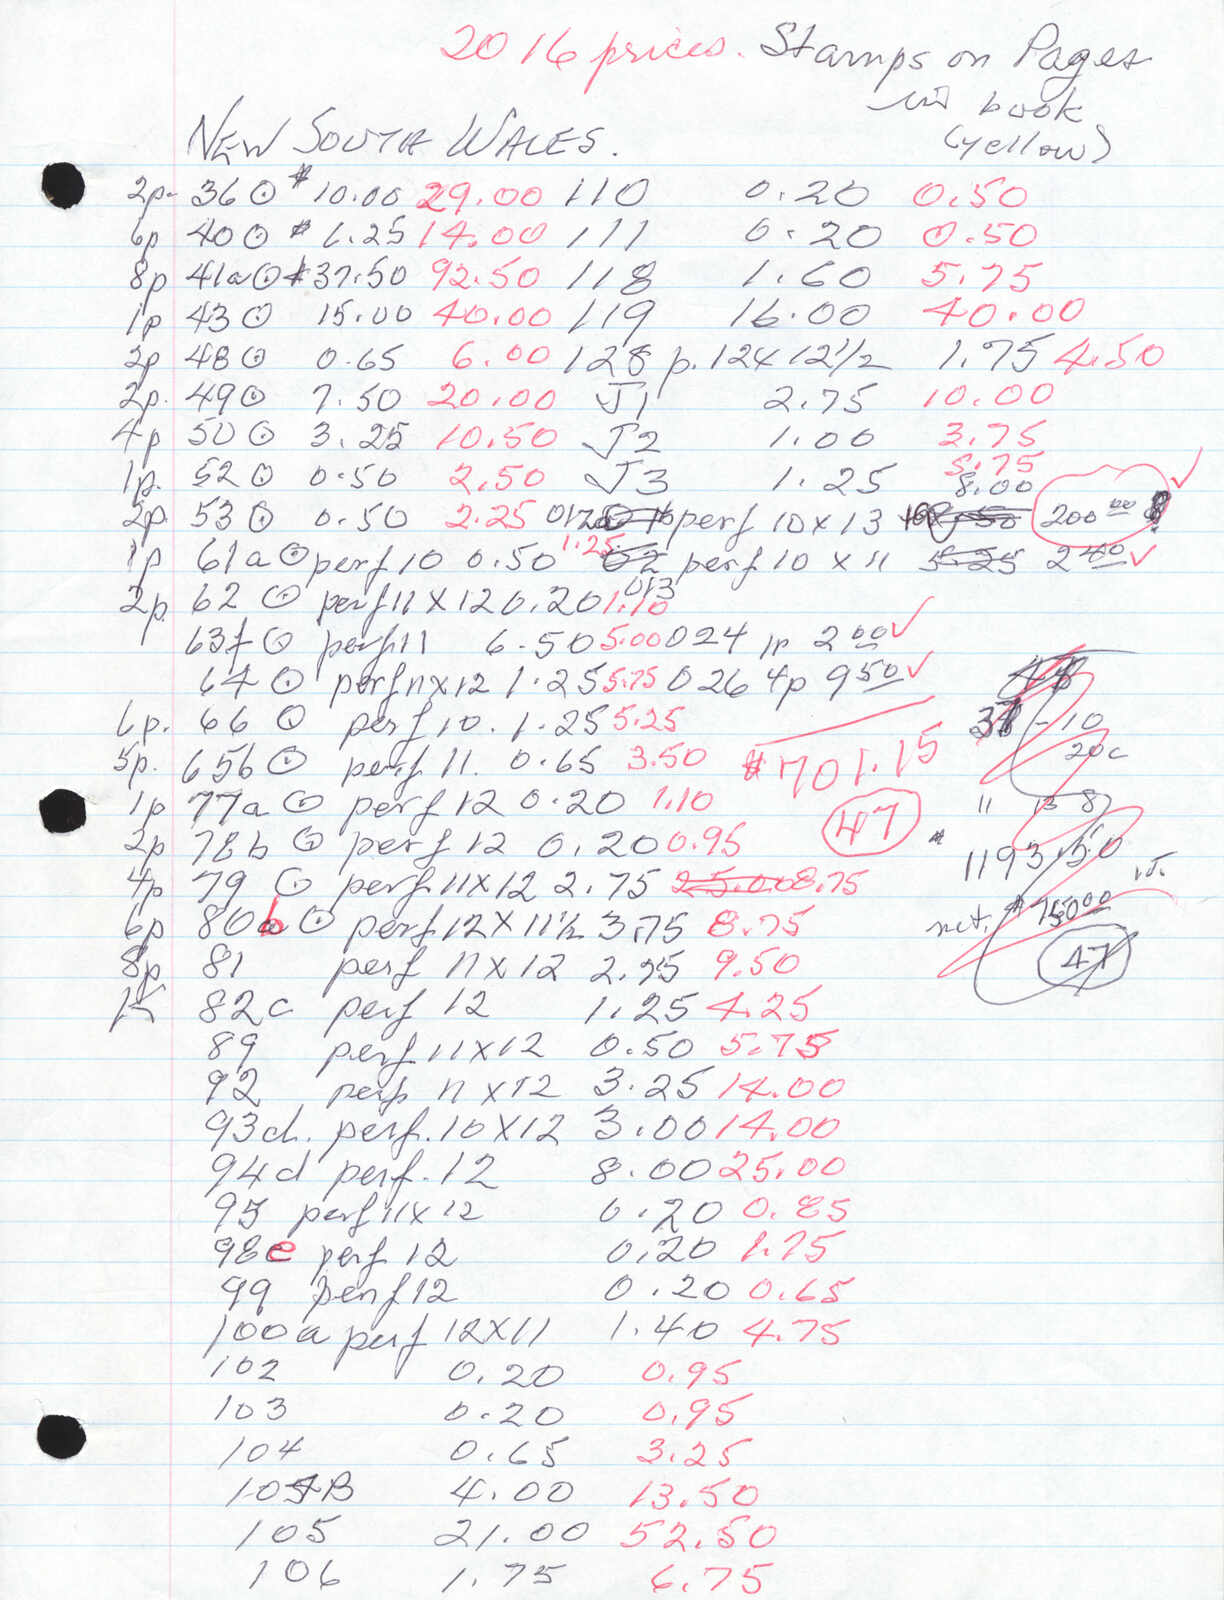 2016 prices. Stamps on Pages
in book
(yellow)
NEW SOUTH WALES.
2p. 36 ⊙ $10.00 29.00 110 0.20 0.50
6p 40 ⊙ $6.25 14.00 111 0.20 0.50
8p 41a ⊙ $37.50 92.50 118 1.60 5.75
1p 43 ⊙ 15.00 40.00 119 16.00 40.00
2p 48 ⊙ 0.65 6.00 128 p. 12x12½ 1.75 4.50
2p. 49 ⊙ 7.50 20.00 J1 2.75 10.00
4p 50 ⊙ 3.25 10.50 J2 1.00 3.75
1p. 52 ⊙ 0.50 2.50 J3 1.25 5.75
8.00
2p. 53 ⊙ 0.50 2.25 perf 10x13 200 00 ✓
1p 61a ⊙ perf 10 0.50 1.25 perf 10 x 11 2 40 ✓
013
2p. 62 ⊙ perf 11x12 0.20 1.10
63f ⊙ perf 11 6.50 5.00 024 1p 2 00 ✓
64 ⊙ perf 11x12 1.25 5.75 026 4p 9 50 ✓
6p. 66 ⊙ perf 10. 1.25 5.25 10
5p. 65b ⊙ perf 11. 0.65 3.50 $701.15 20c
1p 77a ⊙ perf 12 0.20 1.10 47 11
2p 78b ⊙ perf 12 0.20 0.95 $1193.50
4p 79 ⊙ perf 11x12 2.75 25.00 8.75
6p 80b ⊙ perf 12x11½ 3.75 8.75 net. $
8p 81 perf 11x12 2.75 9.50 47
82c perf 12 1.25 4.25
89 perf 11x12 0.50 5.75
92 perf 11x12 3.25 14.00
93d. perf. 10x12 3.00 14.00
94d perf. 12 8.00 25.00
95 perf 11x12 0.20 0.85
98e perf 12 0.20 1.75
99 perf 12 0.20 0.65
100a perf 12x11 1.40 4.75
102 0.20 0.95
103 0.20 0.95
104 0.65 3.25
4.00 13.50
105 21.00 52.50
106 1.75 6.75